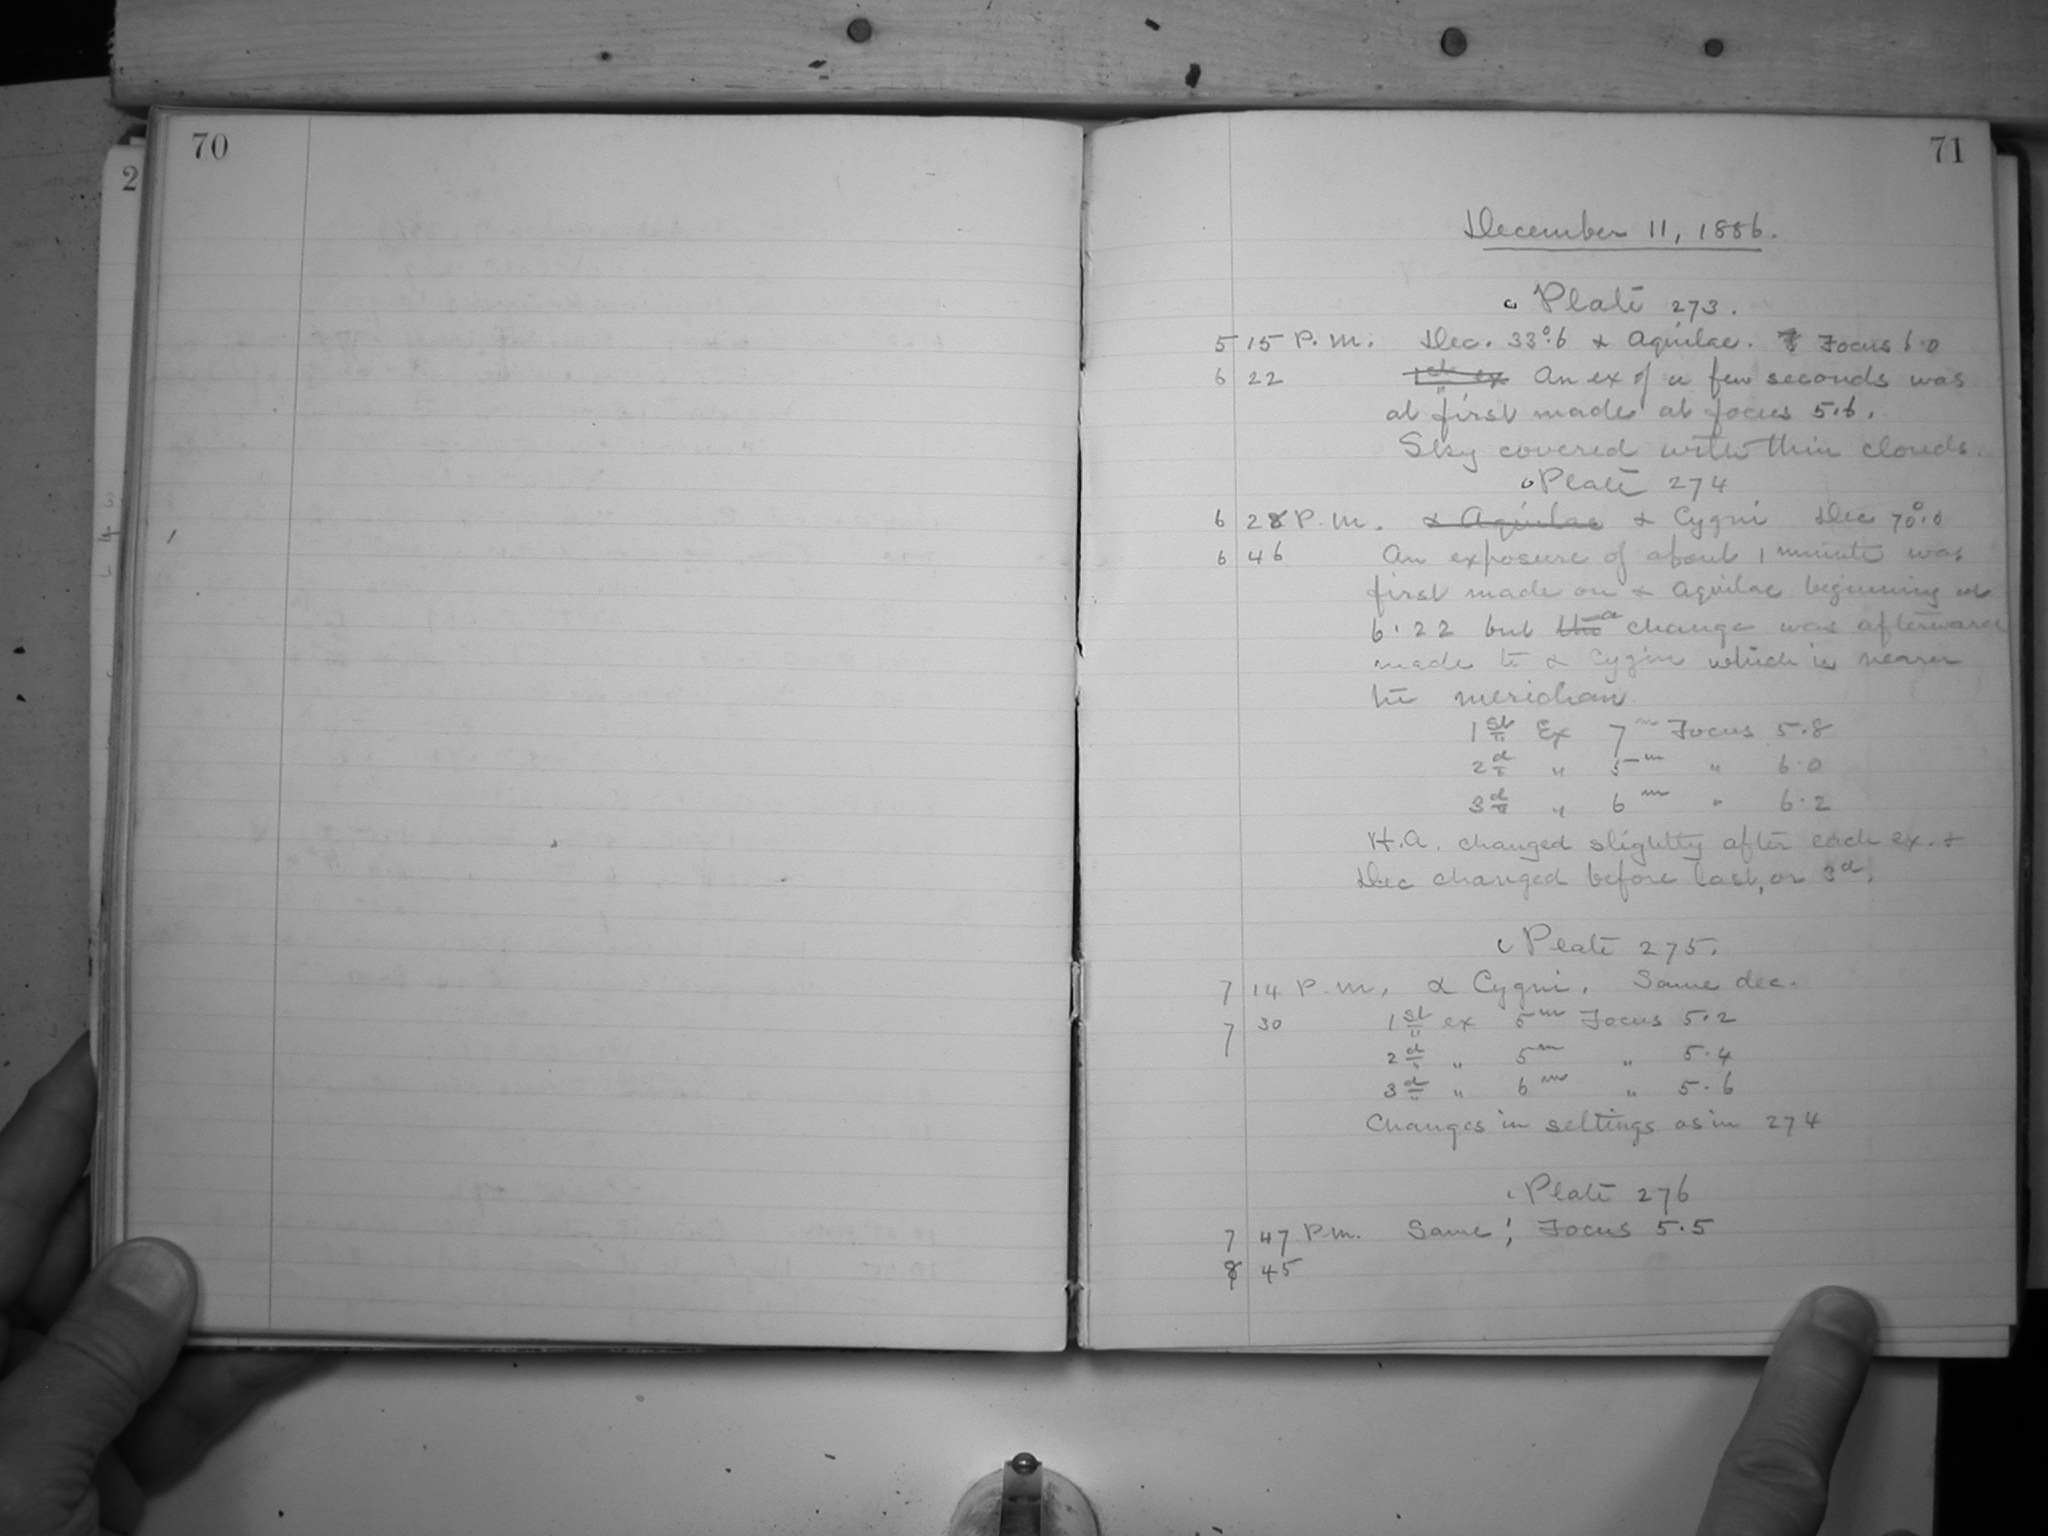 70
2
71
December 11, 1886.
Plate 273.
5 15 P.M. Dec. 33°.6 α Aquilae. Focus 6.0
6 22 1st ex An ex of a few seconds was
at first made at focus 5.6.
Sky covered with thin clouds.
Plate 274
6 28 P.M. α Aquilae α Cygni Dec 70°.0
6 46 An exposure of about 1 minute was
first made on α Aquilae beginning at
6.22 but the a change was afterward
made to α Cygni which is nearer
the meridian
1st Ex 7m Focus 5.8
2d " 5m " 6.0
3d " 6m " 6.2
H.A. changed slightly after each ex. &
Dec changed before last, or 3d.
Plate 275.
7 14 P.M. α Cygni. Same dec.
7 30 1st ex 5m Focus 5.2
2d " 5m " 5.4
3d " 6m " 5.6
Changes in settings as in 274
Plate 276
7 47 P.M. Same; Focus 5.5
8 45